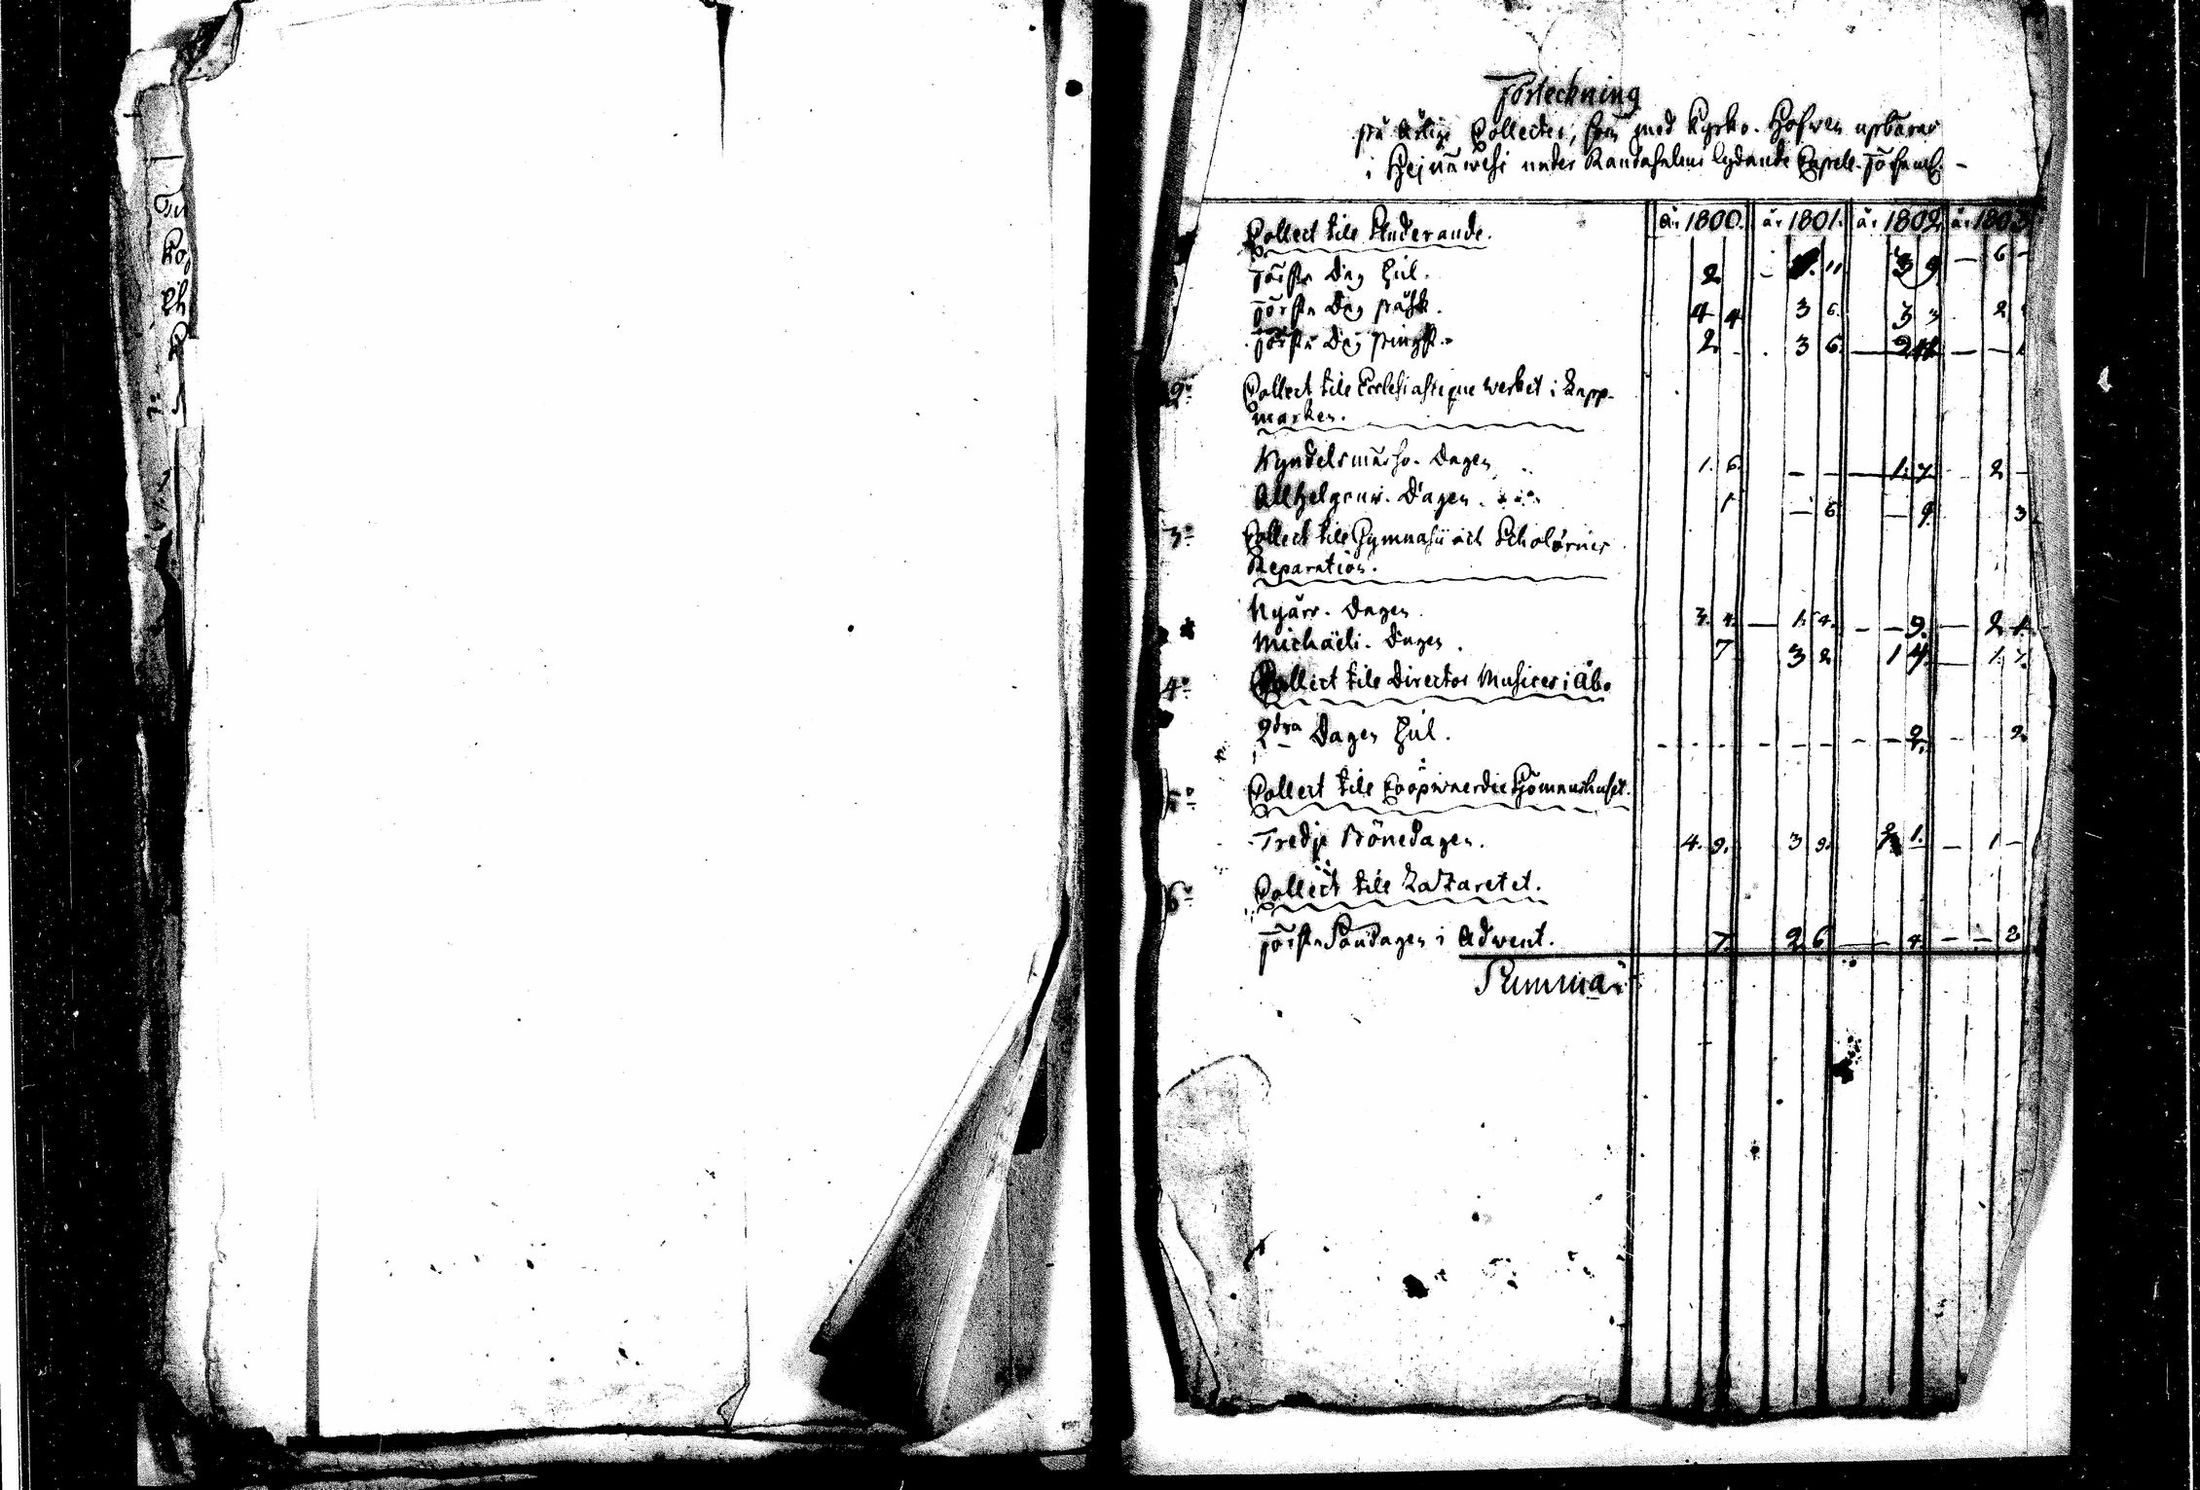 Förteckning
på årlige Collecter, som med Kyrko-Håfwen upbäras
i Heinäwesi under Randasalmi lydande Capell-Församl.
år 1800. år 1801. år 1802. år 1803
Collect till Studerande.
Första Dag Jul. 2 - 11 3 9 - 6 -
Första Dag påsk. 4 4 3 6. 3 3 2
Första Dag pingst. 2. - 3 6. - -
2:o Collect till Ecclesiastique werket i Lapp-
marken.
Kyndelsmässo-Dagen 1. 6. - - 1. 7. 2 -
Allhelgona-Dagen. 1 - 6 - 9. 3
3:o Collect till Gymnasii och Scholornes
Reparation.
Nyårs-Dagen. 3. 4. - 1. 4. - - 9. - 2 1.
Michaëli-Dagen. 7 3 2 1 4. - 1. 7.
4:o Collect till Director Musices i Åbo
2dra Dagen Jul. - - - - - - - - 2. - 2.
5:o Collect till Coopwaerdie Sjömanshuset.
Tredje Bönedagen. 4. 9. 3 9. 1. - 1 -
6:o Collect till Lazaretet.
Första Söndagen i Adwent. 7. 2 6 - - 4. - - 2
Summa